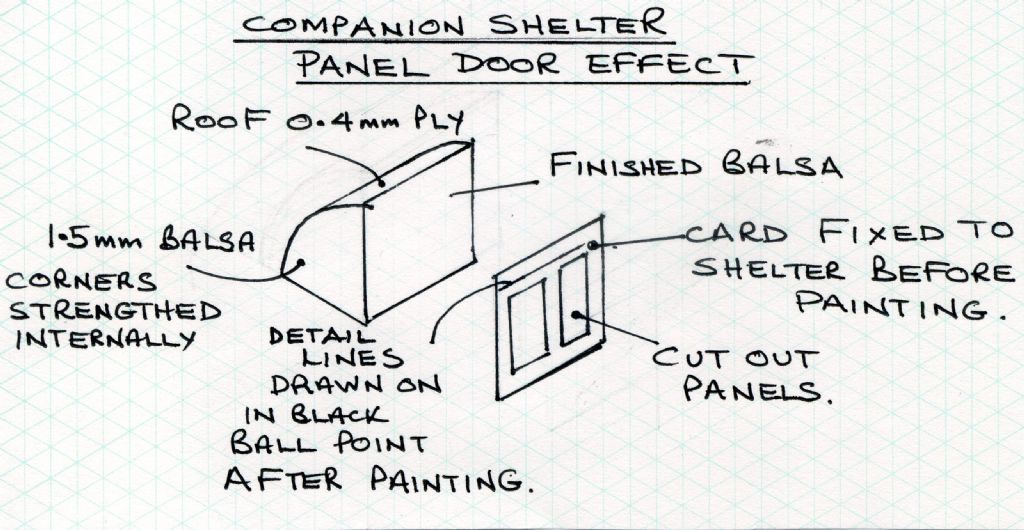 COMPANION SHELTER
PANEL DOOR EFFECT
ROOF 0.4mm PLY
FINISHED BALSA
1.5mm BALSA
CORNERS
STRENGTHED
INTERNALLY
CARD FIXED TO
SHELTER BEFORE
PAINTING.
DETAIL
LINES
DRAWN ON
IN BLACK
BALL POINT
AFTER PAINTING.
CUT OUT
PANELS.